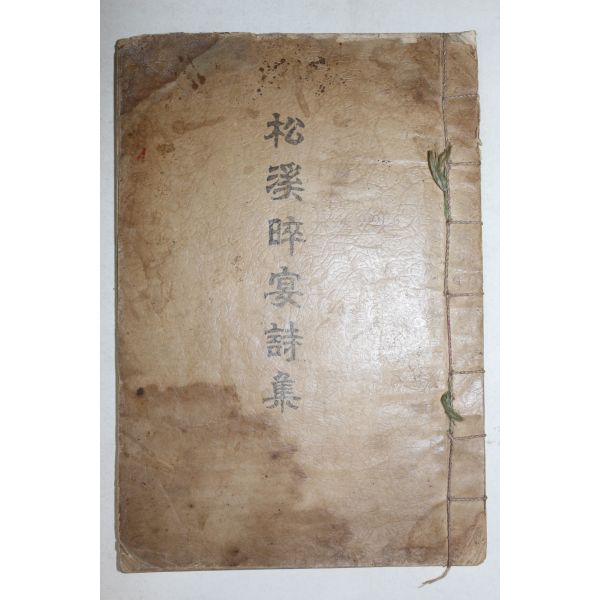 松溪晬宴詩集